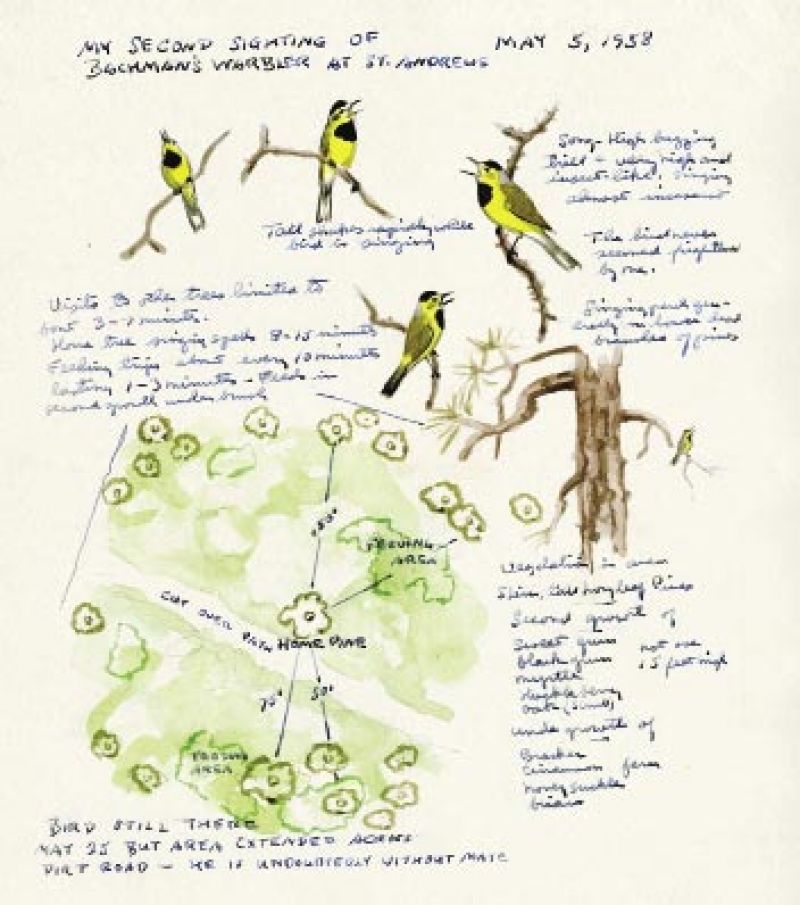 MY SECOND SIGHTING OF
BACHMAN'S WARBLER AT ST. ANDREWS
MAY 5, 1958
Song - High buzzing
trill - very high and
insect-like, singing
almost incessant
Tail shakes rapidly while
bird is singing
The bird never
seemed frightened
by me.
Visits to other trees limited to
bout 3-7 minutes.
Home tree singing spells 8-15 minutes
Feeding trips about every 10 minutes
lasting 1-3 minutes - Feeds in
second growth under brush
Singing perch gen-
erally in lower dead
branches of pines
FEEDING
AREA
CUT OVER PATH
HOME PINE
75'
50'
FEEDING
AREA
Vegetation in area
Longleaf Pines
Second growth of
sweet gum
black gum
myrtle
huckleberry
oak
not over
15 feet high
Under growth of
Bracken
Cinnamon fern
honeysuckle
briars
BIRD STILL THERE
MAY 25 BUT AREA EXTENDED ACROSS
DIRT ROAD - HE IS UNDOUBTEDLY WITHOUT MATE